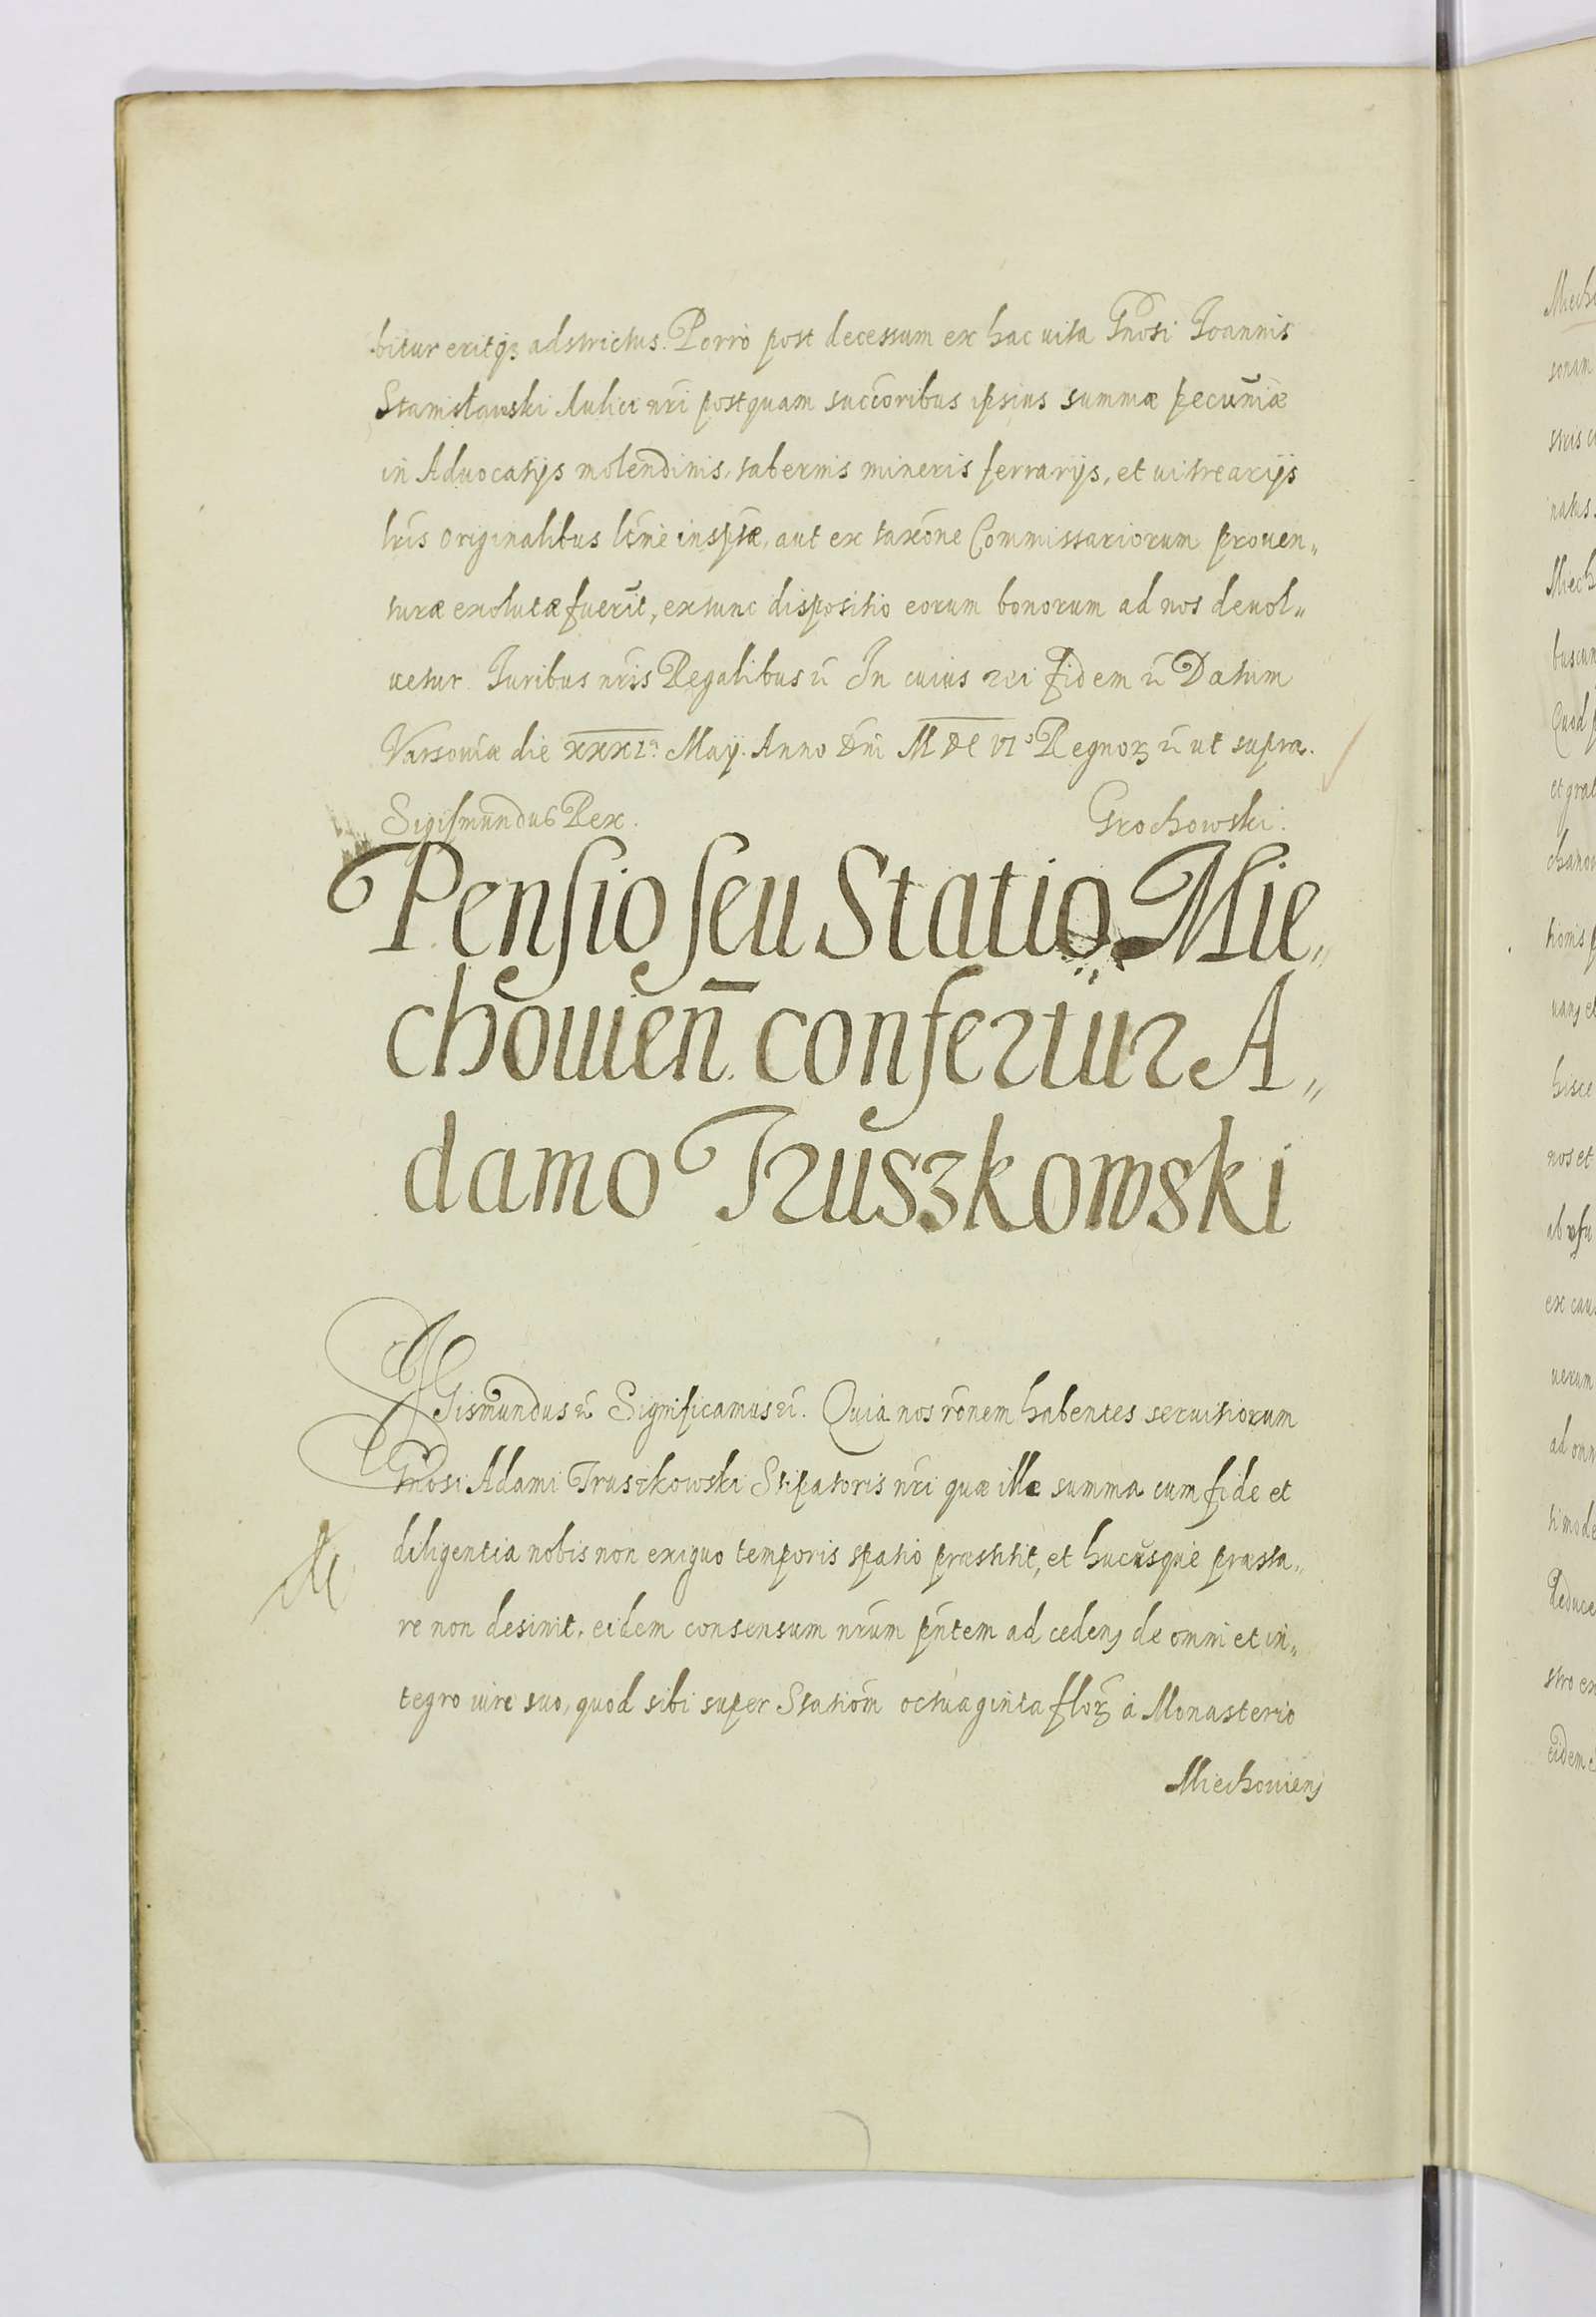 bitur eritqȝ adstrictus. Porro post decessum ex hac uita Gnosi Joannis
Stanislauski Aulici nri postquam succoribus ipsius summæ pecuniæ
in Aduocatijs molendinis, tabernis mineris ferrarijs, et uitrearijs
lris originalibus ltme insptæ, aut ex taxõne Commissariorum prouen„
turæ exolutæ fuerit, extunc dispositio eorum bonorum ad nos deuol„
uetur. Juribus nris Regalibus ꝛc̄ In cuius rei fidem ꝛc̄ Datum
Varsouiæ die XXXI. May. Anno Dni MDCVIº Regnoꝝ ꝛc̄ ut supra.
Sigismundus Rex. Grochowski.
Pensio seu Statio Mie„
chouien̄. confertur A„
damo Truszkowski
Sigismundus ꝛc̄ Significamus ꝛc̄. Quia nos rõnem habentes seruitiorum
Gnosi Adami Truszkowski Stipatoris nri quæ ille summa cum fide et
diligentia nobis non exiguo temporis spatio præstitit, et hucusque præsta„
re non desinit, eidem consensum nrum pntem ad cedenȷ de omni et in„
tegro iure suo, quod sibi super Stationem octuaginta floꝝ à Monasterio
Miechouienȷ